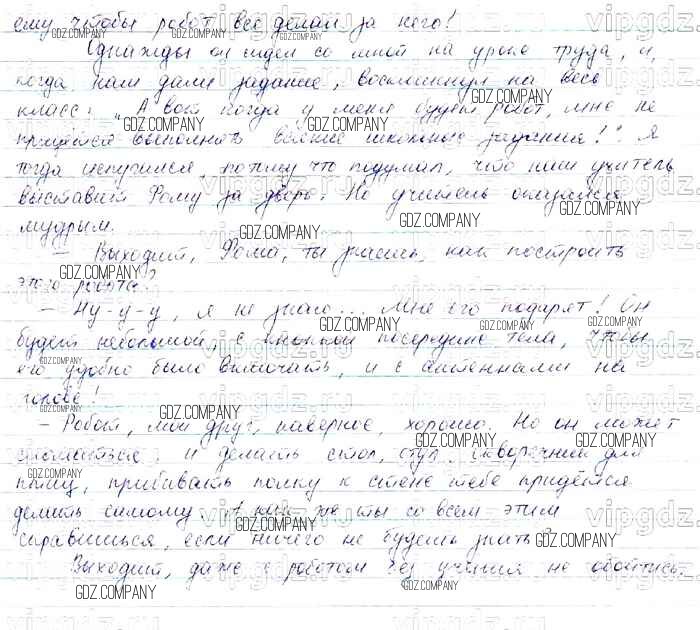 ему чтобы робот всё делал за него!
Однажды он сидел со мной на уроке труда, и,
когда нам дали задание, воскликнул на весь
класс: „А вот когда у меня будет робот, мне не
придётся выполнять всякие школьные задания!". Я
тогда испугался, потому что подумал, что наш учитель
выставит Рому за дверь. Но учитель оказался
мудрым.
– Выходит, Рома, ты знаешь, как построить
этого робота?
– Ну-у-у, я не знаю... Мне его подарят! Он
будет небольшой, с кнопкой посередине тела, чтобы
его удобно было включать, и с антеннами на
голове!
– Робот, мой друг, наверное, хорошо. Но он может
сломаться, и делать стол, стул, скворечник для
птиц, прибивать полку к стене тебе придётся
делать самому. А как же ты со всем этим
справишься, если ничего не будешь знать?
Выходит, даже с роботом без учения не обойтись.
GDZ.COMPANY
vipgdz.ru